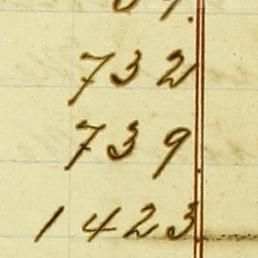 732
739.
1423